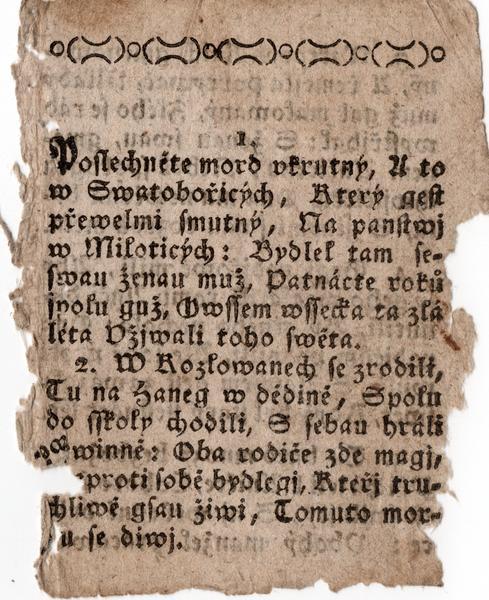 1.
Poslechněte mord vkrutný, A to
w Swatobořicých, Který gest
přewelmi smutný, Na panstwj
w Miloticých: Bydlel tam se-
swau ženau muž, Patnácte roků
spolu guž, Owssem wssecka ta zlá
léta Vžjwali toho swěta.
2. W Rozkowanech se zrodili,
Tu na Haneg w dědině, Spolu
do sskoly chodili, S sebau hráli
winně: Oba rodiče zde magj,
proti sobě bydlegj, Kteřj tru-
chliwě gsau žiwi, Tomuto mor-
u se diwj.